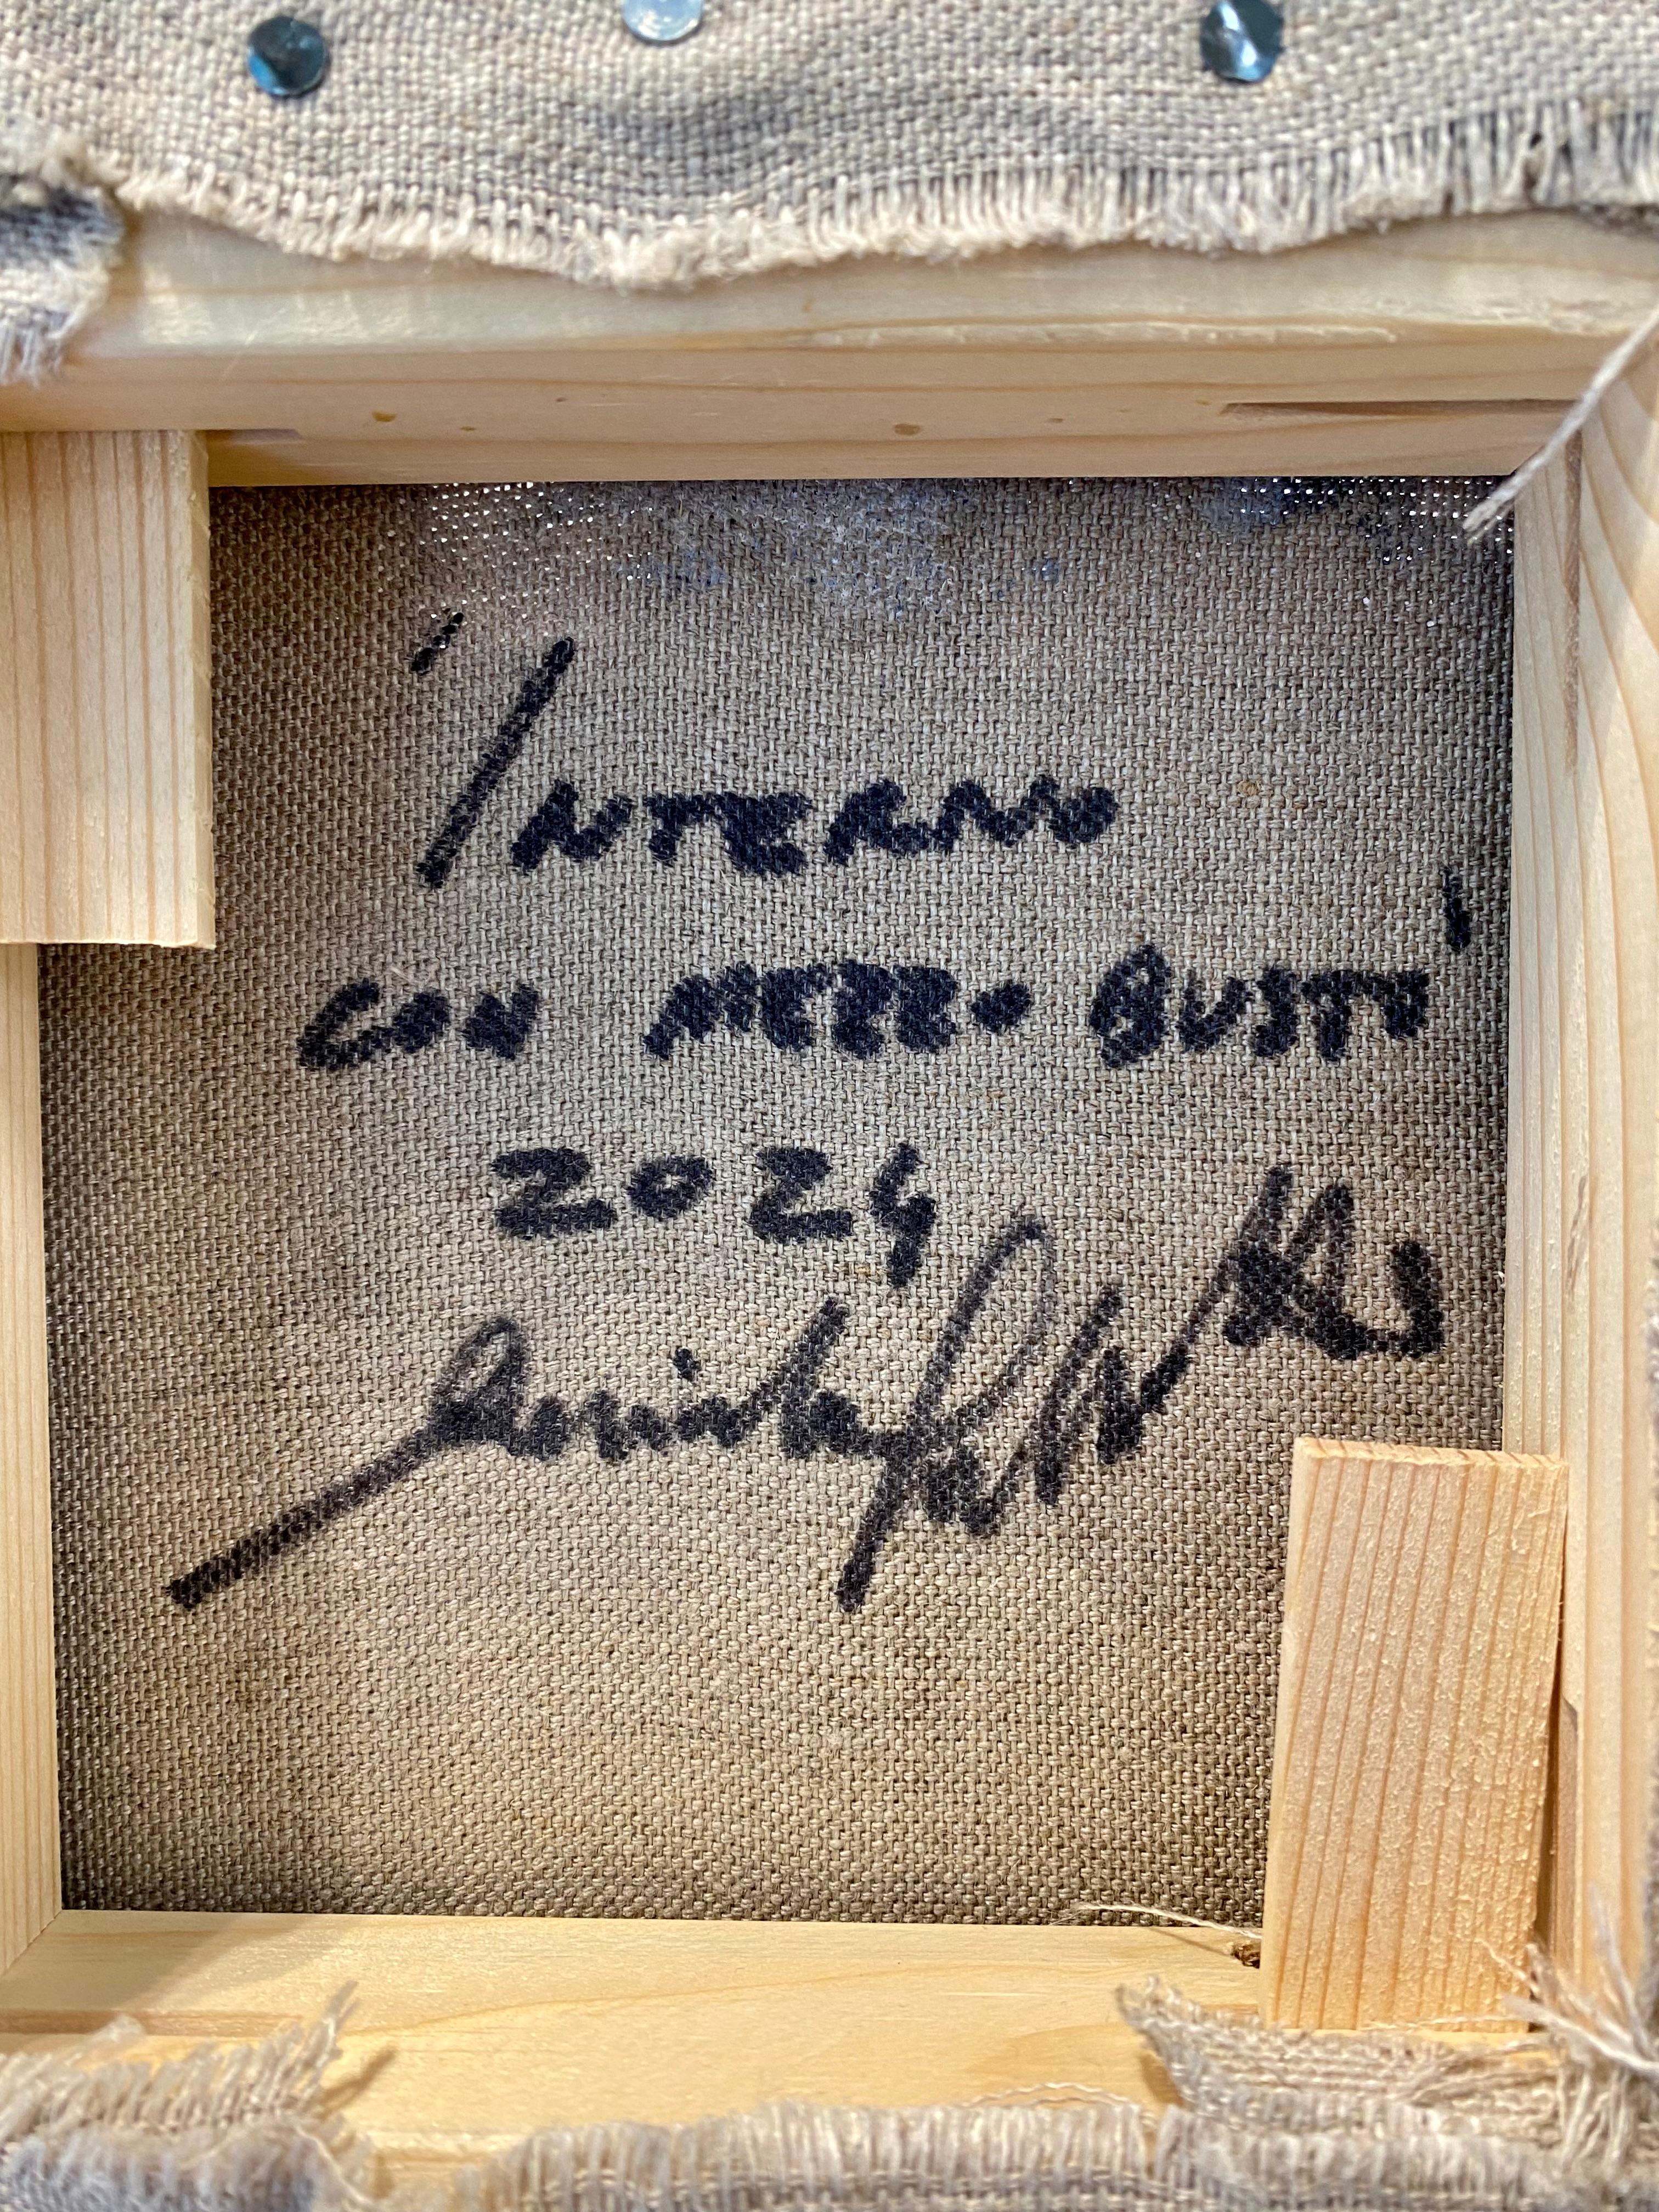 "INTERNO
CON MEZZO-BUSTO"
2024